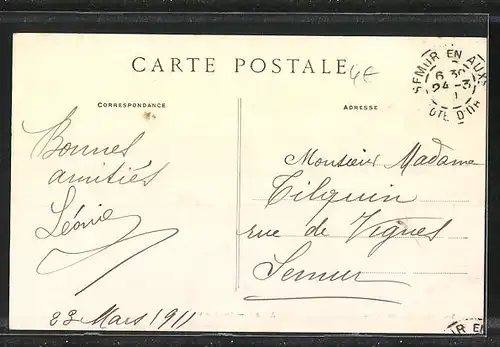 CARTE POSTALE
4€
CORRESPONDANCE
ADRESSE
SEMUR EN AUX
6 30
24 - 3
11
COTE D'OR
Bonnes
amitiés
Léonie
23 Mars 1911
Monsieur Madame
Tilquin
rue de Vignes
Semur
UR EN